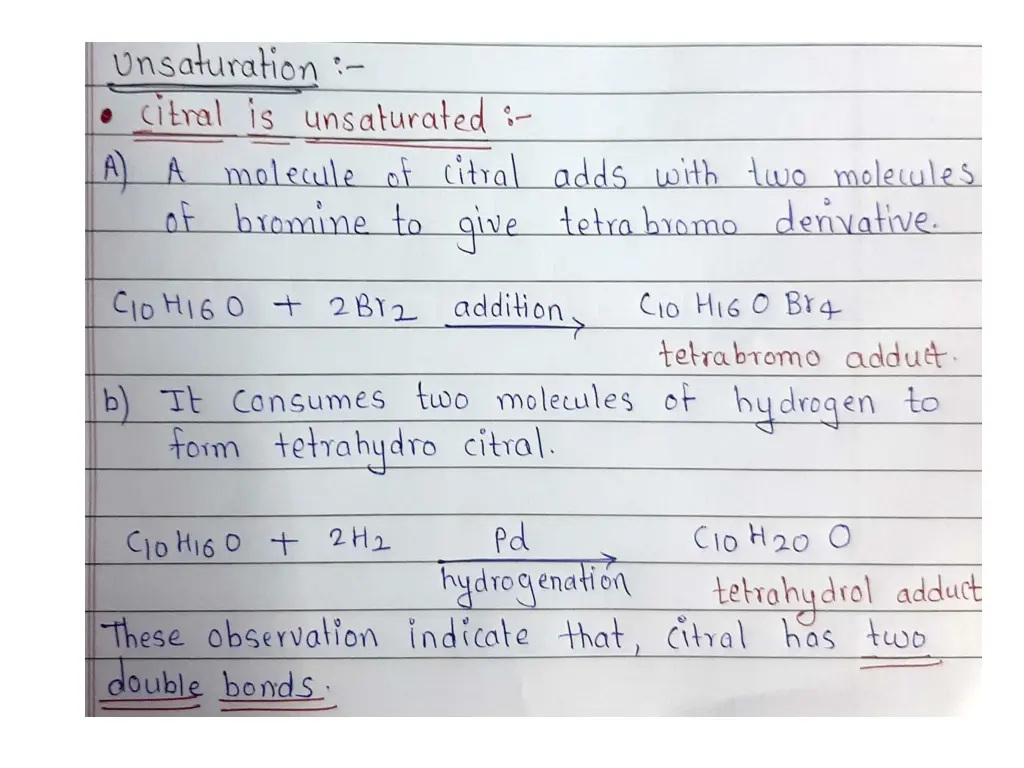 Unsaturation :-
• Citral is unsaturated :-
A) A molecule of citral adds with two molecules
of bromine to give tetra bromo derivative.
C10 H16 O + 2Br2 addition C10 H16 O Br4
tetrabromo adduct.
b) It consumes two molecules of hydrogen to
form tetrahydro citral.
C10 H16 O + 2H2 Pd C10 H20 O
hydrogenation tetrahydrol adduct
These observation indicate that, citral has two
double bonds.